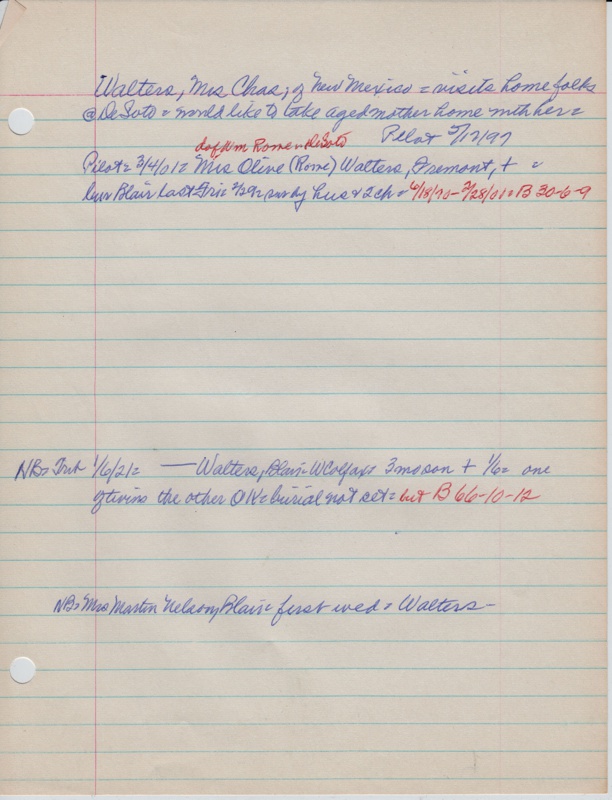 Walters, Mrs Chas, of New Mexico = visits home folks
@ DeSoto = would like to take aged mother home with her =
Pilot 5/12/97
d of Wm Rome DeSoto
Pilot = 3/4/01 = Mrs Olive (Rome) Walters, Fremont, + =
bur Blair last Fri = sur by hus & 2 ch = 6/18/70 - 2/28/01 = B 30-6-9
NB = Trib 1/6/21 = — Walters, Blair = W Colfax = 3 mo son + 1/6 = one
of twins the other OK = burial not set = but B 66-10-12
NB = Mrs Martin Nelson, Blair = first wed = Walters -